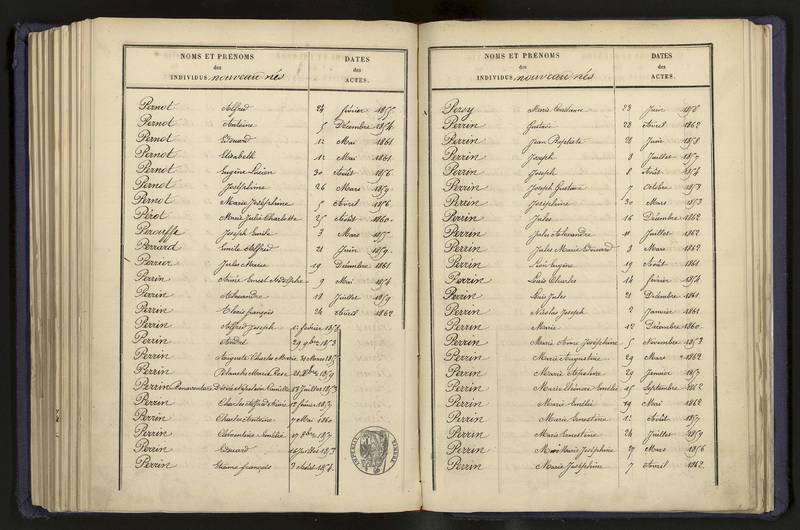 NOMS ET PRÉNOMS
des
INDIVIDUS nouveau nés
DATES
des
ACTES.
Pernot Alfred 24 février 1855
Pernot Antoine 5 Décembre 1854
Pernot Edouard 12 Mai 1861
Pernot Elisabeth 12 Mai 1861
Pernot Eugène Lucien 30 Août 1856
Pernot Joséphine 26 Mars 1859
Pernot Marie Joséphine 5 Avril 1856
Pérot Marie Julie Charlotte 25 Août 1860
Perouffe Joseph Emile 3 Mars
Perrard Emile Alfred 21 Juin 1859
Perrier Jules Marie 19 Décembre 1861
Perrin Aimé Ernest Adolphe 9 Mai 1854
Perrin Alexandre 18 Juillet 1859
Perrin Alexis françois 24 Avril 1862
Perrin Alfred Joseph février
Perrin André 29 9bre 1853
Perrin Auguste Charles Marie 31 Mars
Perrin Blanche Marie Rose 1859
Perrin Bonaventure Désiré Camille 13 Juillet 1853
Perrin Charles Alfred Aimé 12 février 1857
Perrin Charles Antoine 7 Mai 1860
Perrin Clémentine Amélie
Perrin Edouard 16 Juillet 1853
Perrin Etienne françois 3 Août 1854
NOMS ET PRÉNOMS
des
INDIVIDUS nouveau nés
DATES
des
ACTES.
Persy Marie Constance 23 Juin 1858
Perrin Gustave 28 Avril 1862
Perrin Jean Baptiste 28 Juin 1858
Perrin Joseph 8 Juillet 1857
Perrin Joseph 8 Août 1854
Perrin Joseph Gustave 7 Octobre 1853
Perrin Joséphine 30 Mars 1853
Perrin Jules 16 Décembre 1862
Perrin Jules Alexandre 11 Juillet 1862
Perrin Jules Marie Edouard 8 Mars 1862
Perrin Léon Eugène 19 Août 1861
Perrin Louis Charles 14 février 1854
Perrin Louis Jules 21 Décembre 1861
Perrin Nicolas Joseph 2 Janvier 1861
Perrin Marie 12 Décembre 1860
Perrin Marie Anne Joséphine 5 Novembre 1853
Perrin Marie Augustine 29 Mars 1862
Perrin Marie Delphine 29 Janvier 1857
Perrin Marie Eléonore Emélie 15 Septembre 1862
Perrin Marie Emélie 19 Mai 1862
Perrin Marie Ernestine 12 Août 1857
Perrin Marie Ernestine 24 Juillet 1859
Perrin Marie Joséphine 27 Mars 1856
Perrin Marie Joséphine 7 Avril 1862